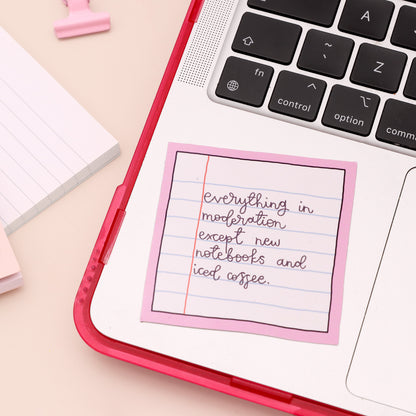 A
~
`
Z
fn
control
^
option
⌥
comma
everything in
moderation
except new
notebooks and
iced coffee.